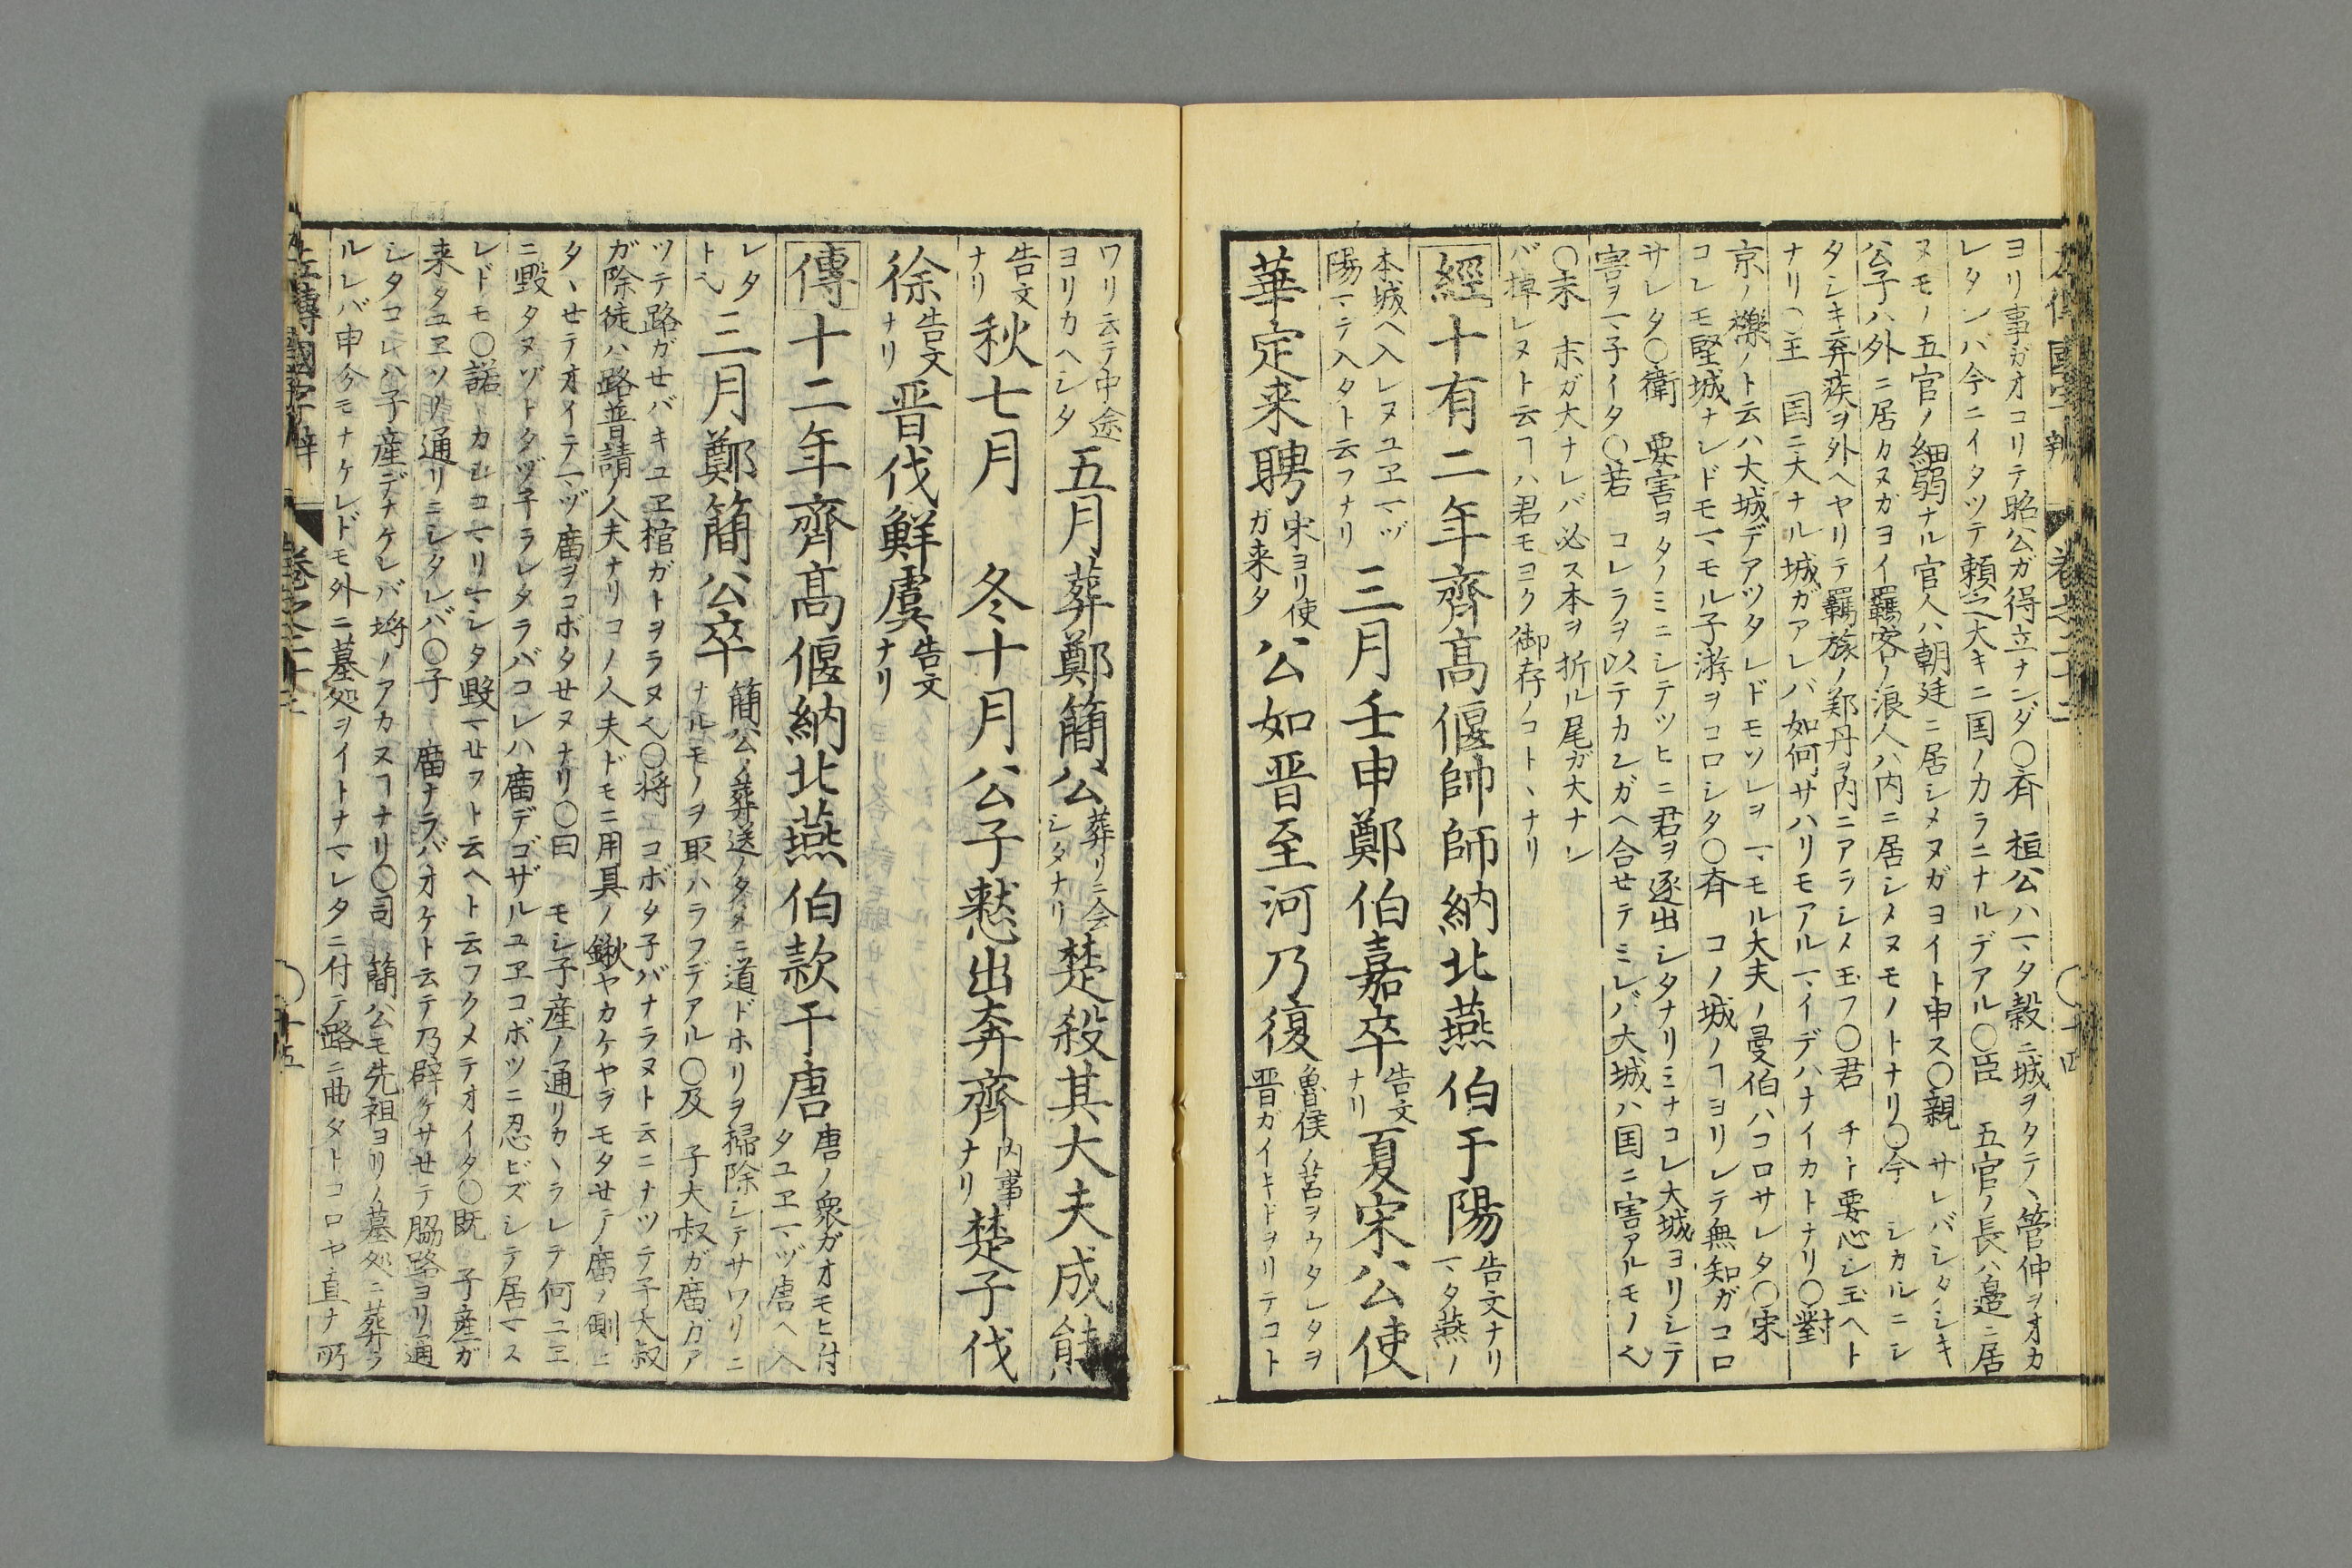 ヨリ事ガオコリテ昭公ガ得立ナンダ〇斉　桓公ハマタ穀ニ城ヲタテヽ管仲ヲオカ
レタレバ今ニイタツテ頼之大キニ国ノカラニナルデアル〇臣　五官ノ長ハ邉ニ居
ヌモノ五官ノ細弱ナル官人ハ朝廷ニ居シメヌガヨイト申ス〇親　サレバシタシキ
公子ハ外ニ居カヌガヨイ羈客ノ浪人ハ内ニ居シメヌモノトナリ〇今　シカルニシ
タシキ弃疾ヲ外ヘヤリテ羈旅ノ鄭丹ヲ内ニアラシメ玉フ〇君　チト要心シ玉ヘト
ナリ〇王　国ニ大ナル城ガアレバ如何サハリモアルマイデハナイカトナリ〇對
京ノ櫟ノト云ハ大城デアツタレドモソレヲマモル大夫ノ曼伯ハコロサレタ〇宋
コレモ堅城ナレドモマモル子游ヲコロシタ〇斉　コノ城ノヿヨリシテ無知ガコロ
サレタ〇衛　要害ヲタノミニシテツヒニ君ヲ逐出シタナリミナコレ大城ヨリシテ
害ヲマ子イタ〇若　コレラヲ以テカンガヘ合セテミレバ大城ハ国ニ害アルモノ也
〇末　末ガ大ナレバ必ス本ヲ折ル尾ガ大ナレ
バ掉レヌト云ヿハ君モヨク御存ノコトヽナリ
經十有二年齊髙偃帥師納北燕伯于陽告文ナリマタ燕ノ
本城ヘ入レヌユヱマヅ陽マテ入タト云フナリ三月壬申鄭伯嘉卒告文ナリ夏宋公使
華定来聘宋ヨリ使ガ来タ公如晋至河乃復魯侯ノ莒ヲウタレタヲ晋ガイキドヲリテコト
ワリ云テ中途ヨリカヘシタ五月葬鄭簡公葬リニ会シタナリ楚殺其大夫成熊
告文ナリ秋七月　冬十月公子憖出奔齊内事ナリ楚子伐
徐告文ナリ晋伐鮮虞告文ナリ
傳十二年齊髙偃納北燕伯款于唐唐ノ衆ガオモヒ付タユヱマヅ唐ヘ入
レタト也三月鄭簡公卒簡公ノ葬送ノタメニ道ドホリヲ掃除シテサワリニナルモノヲ取ハラフデアル〇及　子大叔ガ廟ガア
ツテ路ガセバキユヱ棺ガトヲラヌ也〇将　コボタ子バナラヌト云ニナツテ子大叔
ガ除徒ハ路普請ノ人夫ナリコノ人夫ドモニ用具ノ鍬ヤカケヤヲモタセテ廟ノ側ニ
タヽセテオイテマヅ廟ヲコボタセヌナリ〇曰　モシ子産ノ通リカヽラレテ何ニ
ニ毀タヌゾトタヅ子ラレタラバコレハ廟デゴザルユヱコボツニ忍ビズシテ居マス
レドモ〇諾　カシコマリマシタ毀マセフト云ヘト云フクメテオイタ〇既　子産ガ
来タユヱソノ通リニシタレバ〇子　廟ナラバオケト云テ乃辟ケサセテ脇路ヨリ通
シタコレハ子産デナケレバ埒ノアカヌヿナリ〇司　簡公モ先祖ヨリノ墓処ニ葬ラ
ルレバ申分モナケレドモ外ニ墓処ヲイトナマレタニ付テ路ニ曲タトコロヤ直ナ所